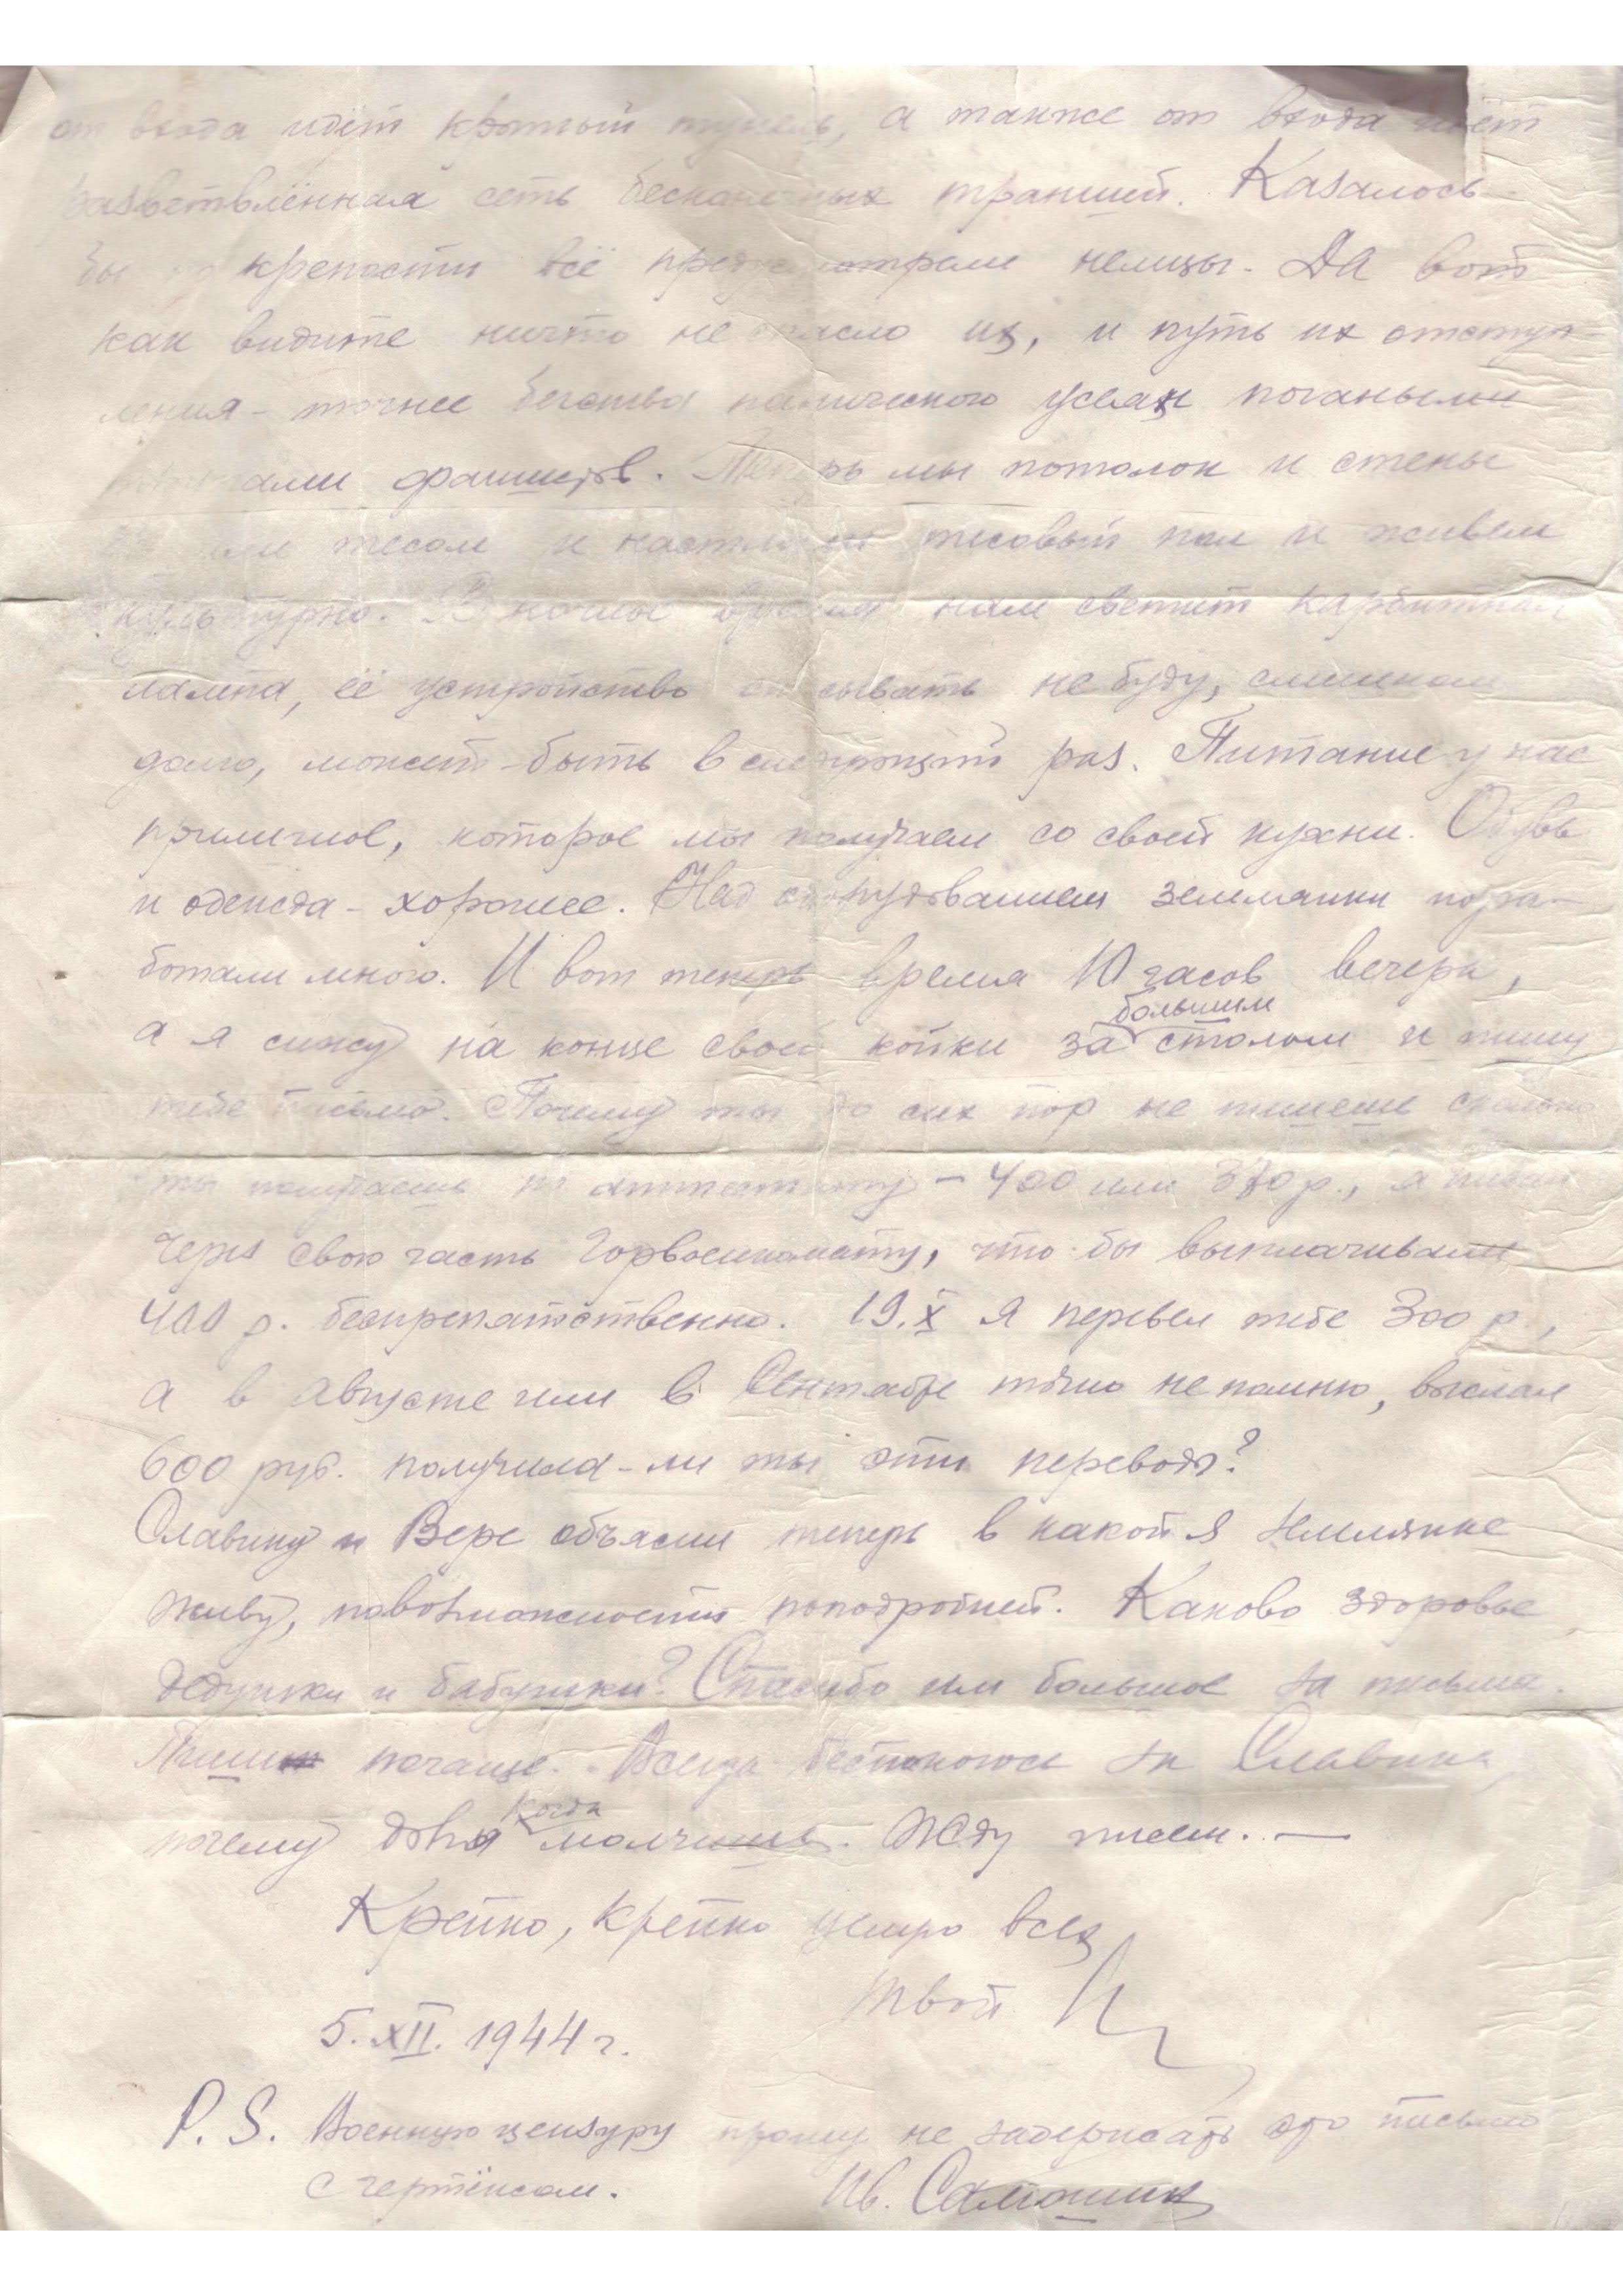 от входа идёт крытый тунель, а также от входа идёт
разветвлённая сеть бесконечных траншей. Казалось
бы крепости всё предусмотрели немцы. Да вот
как видите ничто не спасло их, и путь их отступ
ления - точнее бегства панического усеян погаными
фашистов. Теперь мы потолок и стены
тесом и настлали тесовый пол и живем
культурно. В ночное время нам светит карбитная
лампа, её устройство описывать не буду, слишком
долго, может-быть в следующий раз. Питание у нас
приличное, которое мы получаем со своей кухни. Обувь
и одежда - хорошее. Над оборудованием землянки пора-
ботали много. И вот теперь время 10 часов вечера,
а я сижу на конце своей койки за большим столом и пишу
тебе письмо. Почему ты до сих пор не пишешь сколько
ты получаешь по аттестату - 400 или 370 р., я писал
через свою часть Горвоенкомату, что-бы выплачивали
400 р. беспрепятственно. 19.X я перевел тебе 300 р.,
а в августе или в Сентябре точно не помню, выслал
600 руб. получила-ли ты эти переводы?
Славику и Вере объясни теперь в какой я землянке
живу, повозможности поподробней. Каково здоровье
дедушки и бабушки? Спасибо им большое за письма.
Пиши почаще. Всегда беспокоюсь за Славика,
почему когда молчишь. Жду писем. —
Крепко, крепко целую всех
твой
5. XII. 1944 г.
P.S. Военную цензуру прошу не задержать это письмо
с чертёжом. Ив. Самошин